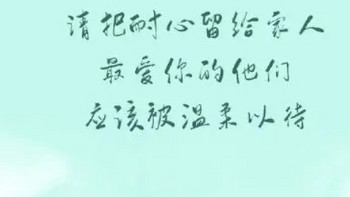 请把耐心留给家人
最爱你的他们
应该被温柔以待